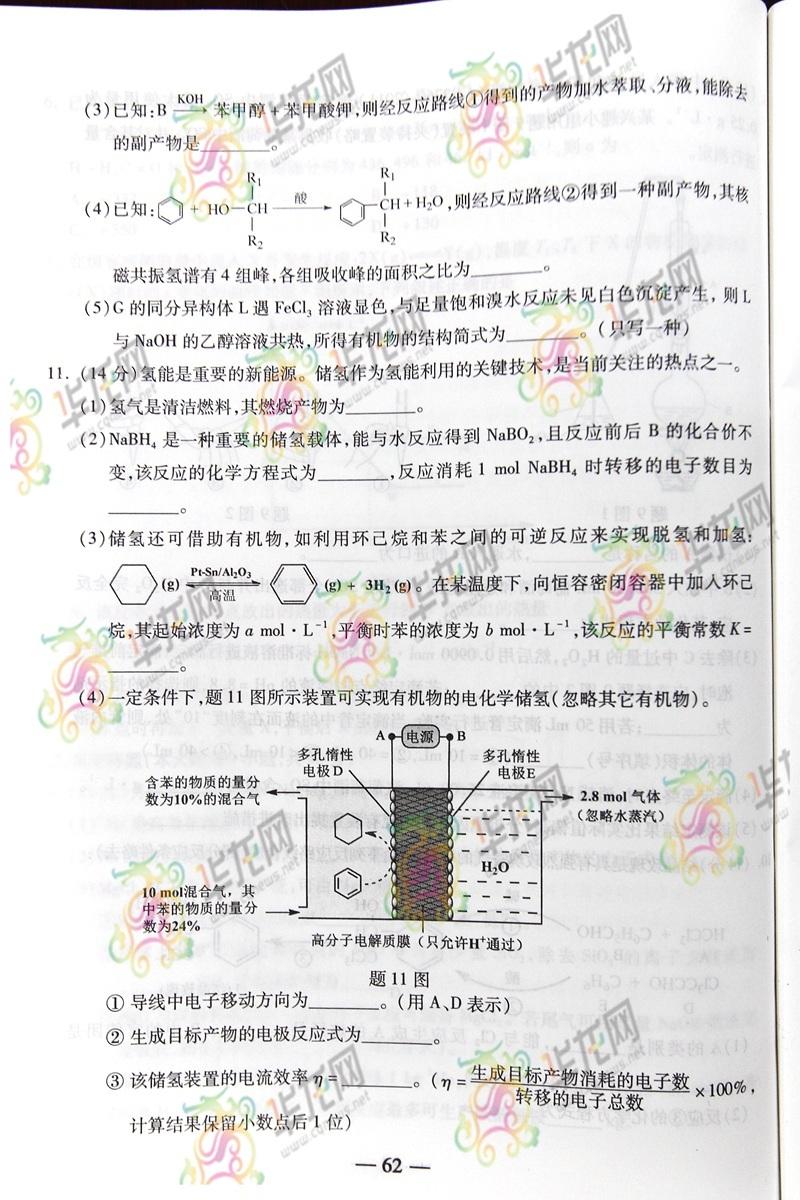 (3)已知:B KOH 苯甲醇+苯甲酸钾,则经反应路线①得到的产物加水萃取、分液,能除去
的副产物是________。
(4)已知: + HO—CH 酸 CH+H₂O,则经反应路线②得到一种副产物,其核
R₁ R₁
R₂ R₂
磁共振氢谱有4组峰,各组吸收峰的面积之比为________。
(5)G的同分异构体L遇FeCl₃溶液显色,与足量饱和溴水反应未见白色沉淀产生, 则L
与NaOH的乙醇溶液共热,所得有机物的结构简式为________。(只写一种)
11. (14分)氢能是重要的新能源。储氢作为氢能利用的关键技术,是当前关注的热点之一。
(1)氢气是清洁燃料,其燃烧产物为________。
(2)NaBH₄是一种重要的储氢载体,能与水反应得到NaBO₂,且反应前后B的化合价不
变,该反应的化学方程式为________,反应消耗1 mol NaBH₄时转移的电子数目为
________。
(3)储氢还可借助有机物,如利用环己烷和苯之间的可逆反应来实现脱氢和加氢:
(g) Pt-Sn/Al₂O₃ 高温 (g) + 3H₂(g)。在某温度下,向恒容密闭容器中加入环己
烷,其起始浓度为a mol·L⁻¹,平衡时苯的浓度为b mol·L⁻¹,该反应的平衡常数K=
________。
(4)一定条件下,题11图所示装置可实现有机物的电化学储氢(忽略其它有机物)。
A 电源 B
多孔惰性
电极D
多孔惰性
电极E
含苯的物质的量分
数为10%的混合气
2.8 mol 气体
(忽略水蒸汽)
H₂O
10 mol混合气,其
中苯的物质的量分
数为24%
高分子电解质膜(只允许H⁺通过)
题11图
①导线中电子移动方向为________。(用A、D表示)
②生成目标产物的电极反应式为________。
③该储氢装置的电流效率η=________。(η=生成目标产物消耗的电子数/转移的电子总数×100%,
计算结果保留小数点后1位)
— 62 —
1华龙网
www.cqnews.net